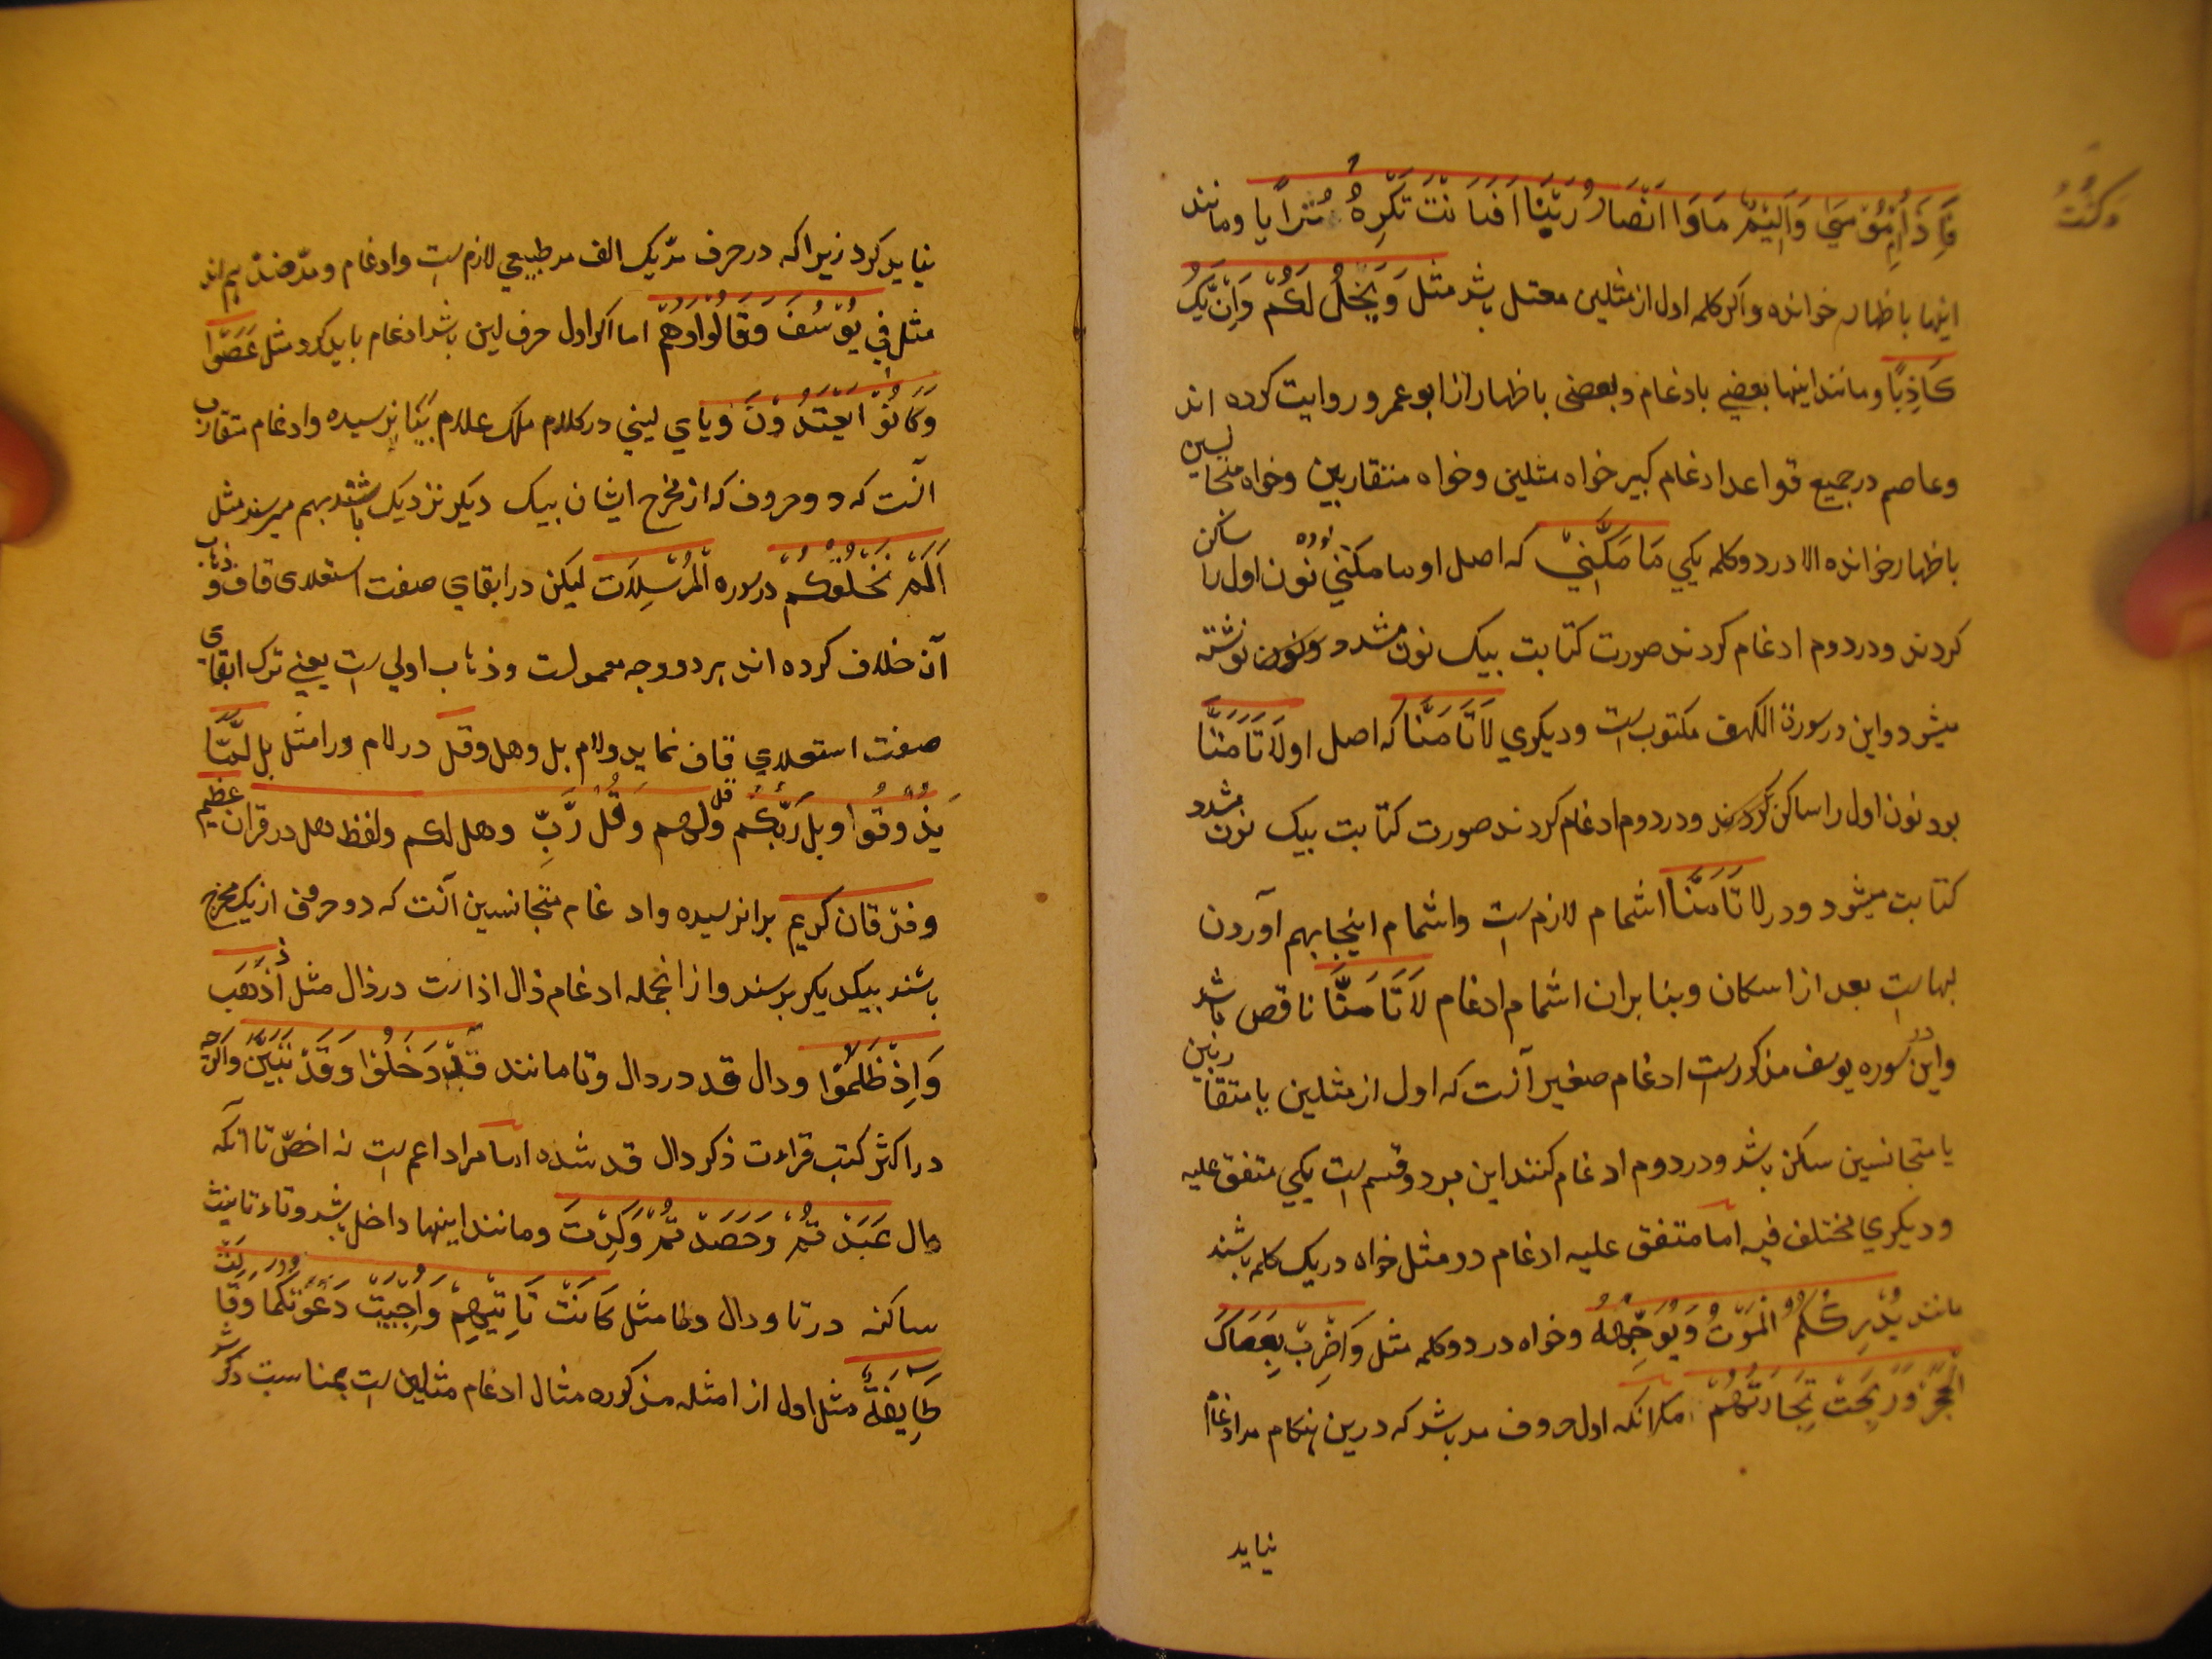 وَكُنْتُ
مَا وَا اَنْصَارُ رَبَّنَا اَفَاَنْتَ تُكْرِهُ تُرَابًا ومانند
اینها باظهار خوانده واکر کلمه اول از مثلین معتل باشد مثل وَيَخْلُ لَكُمْ وَاِنْ يَكُ
كَاذِبًا ومانند اینها بعضي بادغام وبعضی باظهار از ابو عمرو روایت کرده اند
وعاصم در جمیع قواعد ادغام کبیر خواه مثلین وخواه متقاربین وخواه متجانسین
باظهار خوانده الا در دو کلمه یکي مَا مَكَّنِّيْ که اصل او ما مکننی بوده نون اول را ساکن
کردند ودر دوم ادغام کردند صورت کتابت بیک نون مشدد نوشته
میشود واین در سورة الکهف مکتوبست ودیکري لَا تَأمَنَّا که اصل او لَا تَأمَنُنَا
بود نون اول را ساکن کردند ودر دوم ادغام کردند صورت کتابت بیک نون مشدد
کتابت میشود ودر لا تَأمَنَّا اشمام لازمست واشمام اینجا بهم آوردن
لبهاست بعد از اسکان وبنابران اشمام ادغام لَا تَأمَنَّا ناقص باشد
واین در سوره یوسف مذکورست ادغام صغیر آنست که اول از مثلین یا متقاربین
یا متجانسین ساکن باشد ودر دوم ادغام کنند این بر دو قسمست یکي متفق علیه
ودیکري مختلف فیه اما متفق علیه ادغام دو مثل خواه در یک کلمه باشند
مانند يُدْرِكْكُمُ الْمَوْتُ وَيُوَجِّهْهُ وخواه در دو کلمه مثل وَاضْرِبْ بِعَصَاكَ
الْحَجَرَ وَرَبِحَتْ تِجَارَتُهُمْ مکر انکه اول حروف مد باشد که درین هنکام مد ادغام
نیاید
نباید کرد زیرا که در حرف مدّ یک الف مد طبیعي لازمست وادغام ومدّ ضد بهم اند
مثل فِي يُوْسُفَ وَقَالُوْا وَهُمْ اما اکر اول حرف لین باشد ادغام باید کرد مثل عَصَوْا
وَكَانُوْا يَعْتَدُوْنَ ویاي لیني در کلام ملک علام بیکا نرسیده وادغام متقارب
آنست که دو حروف که از مخرج ایشان بیک دیکر نزدیک باشند بهم میرسند مثل
اَلَمْ نَخْلُقْكُمْ در سوره اَلْمُرْسِلَات لیکن در ابقاي صفت استعلای قاف وذهاب
آن خلاف کرده اند هر دو وجه معمولست وذهاب اولی ست یعنی ترک ابقای
صفت استعلاي قاف نماید ولام بل وهل وقل در لام ورا مثل بل لَمَّا
يَذُوقُوا وبل رَبُّكُمْ وقل لهم وَقُلْ رَّبِّ وهل لکم ولفظ هل در قران عظیم
وفرقان کریم برا نرسیده وادغام متجانسین آنست که دو حروف از یک مخرج
باشند بیکدیکر برسند وازانجمله ادغام ذال اذ است در ذال مثل اِذْ ذَهَبَ
وَاِذْ ظَلَمُوْا ودال قد در دال وتا مانند قَدْ دَخَلُوْا وَقَدْ تَبَيَّنَ واکرچه
در اکثر کتب قراءت ذکر دال قد شده اما مراد اعم ست نه اخصّ تا آنکه
دال عَبَدْتُمْ وَحَصَدْتُمْ وَكِدْتَ ومانند اینها داخل باشد وتاء تانیث
ساکنه در تا ودال وطا مثل كَانَتْ تَاتِيْهِمْ وَاُجِيْبَتْ دَعْوَتُكُمَا وَقَالَتْ
طَايِفَةٌ مثل اول از امثله مذکوره مثال ادغام مثلین ست بمناسبت ذکر شد